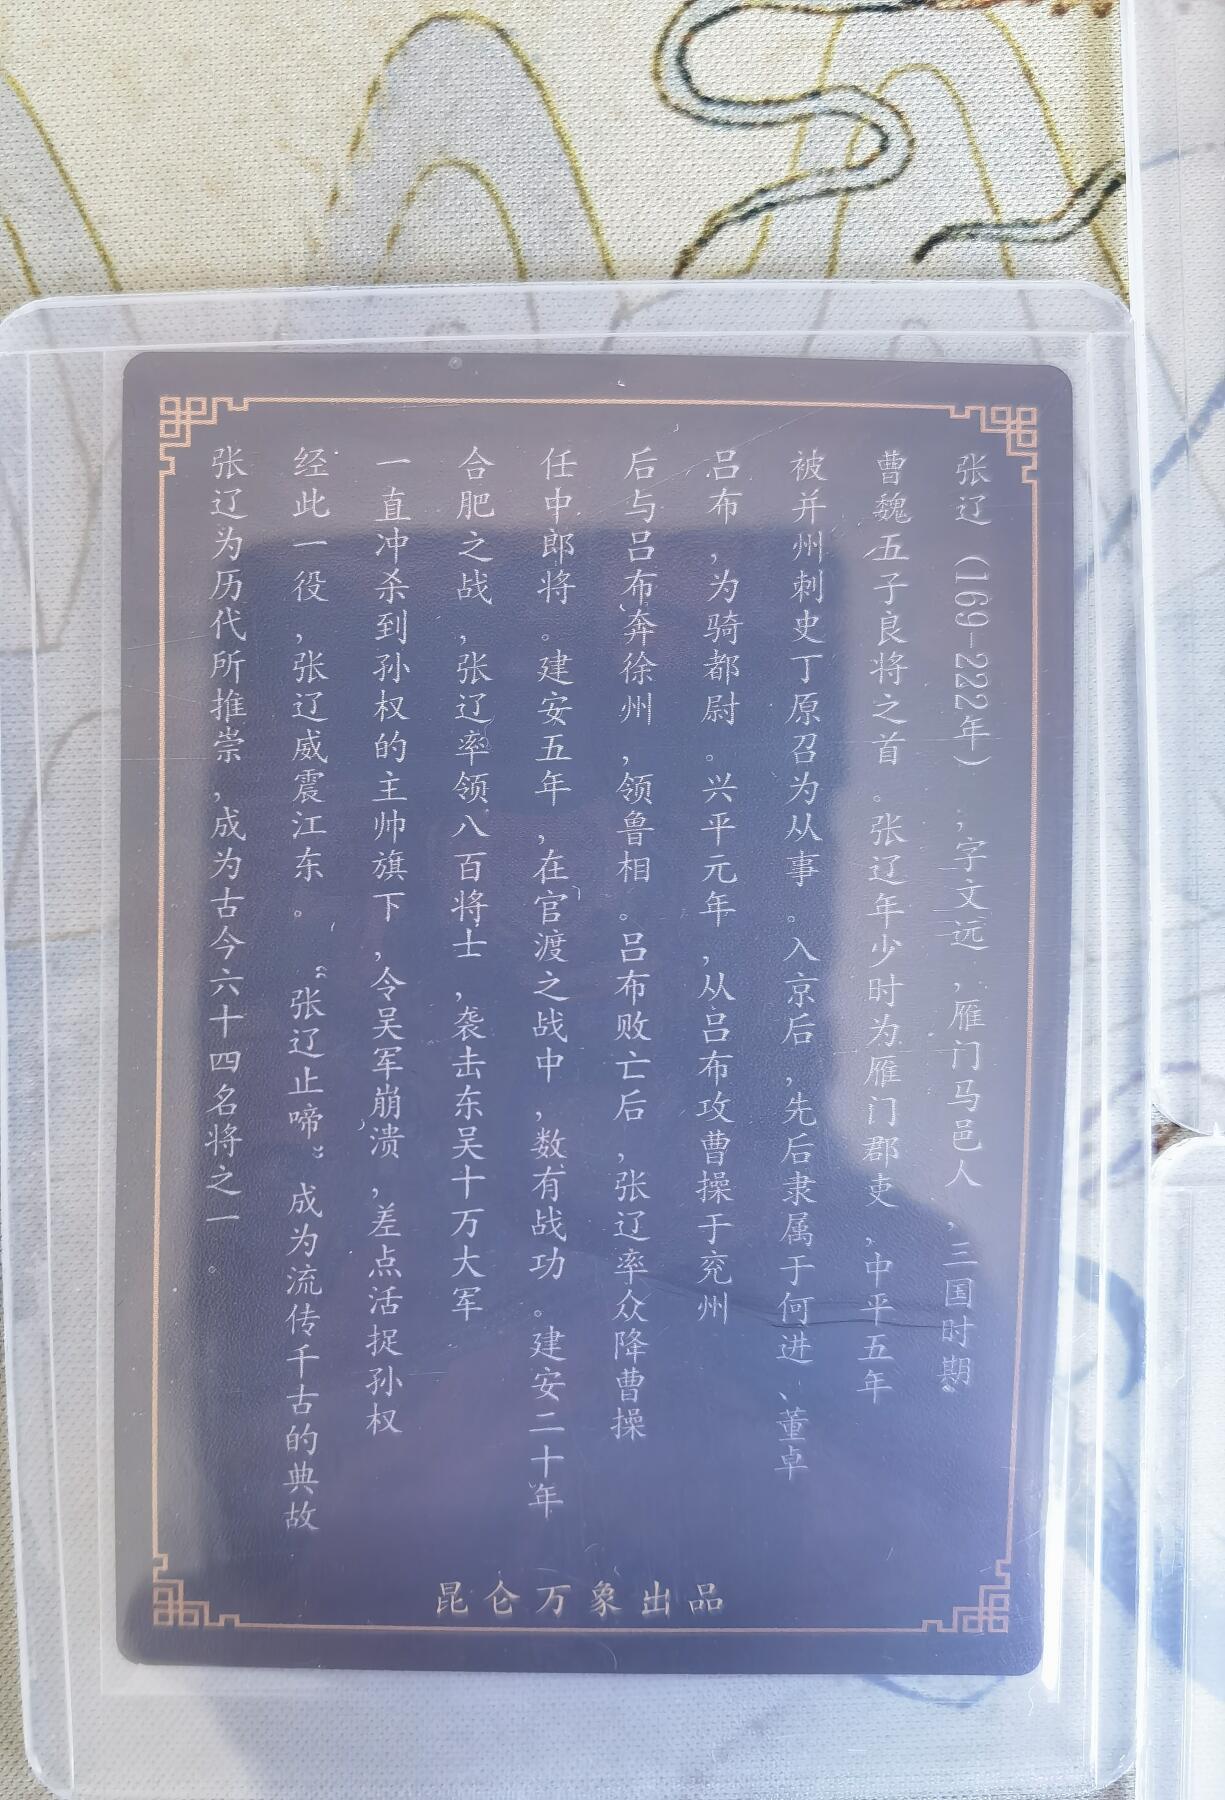 张辽（169-222年），字文远，雁门马邑人，三国时期
曹魏五子良将之首。张辽年少时为雁门郡吏，中平五年
被并州刺史丁原召为从事。入京后，先后隶属于何进、董卓
吕布，为骑都尉。兴平元年，从吕布攻曹操于兖州
后与吕布奔徐州，领鲁相。吕布败亡后，张辽率众降曹操
任中郎将。建安五年，在官渡之战中，数有战功。建安二十年
合肥之战，张辽率领八百将士，袭击东吴十万大军
一直冲杀到孙权的主帅旗下，令吴军崩溃，差点活捉孙权
经此一役，张辽威震江东。“张辽止啼”成为流传千古的典故
张辽为历代所推崇，成为古今六十四名将之一。
昆仑万象出品